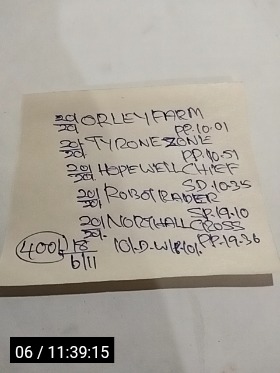 20/20 ORLEY FARM
PP.10.01
20/20 TYRONES ZONE
PP.10.57
20/20 HOPEWELL CHIEF
SD.10.35
20/20 ROBOTRADER
SP.19.10
20/20 NORTHALL CROSS
PP.19.36
400
6/11
06 / 11:39:15